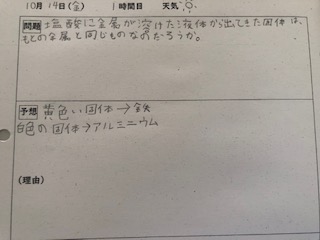 10月14日(金) 1時間目 天気
問題 塩酸に金属が溶けた液体から出てきた固体は、
もとの金属と同じものなのだろうか。
予想 黄色い固体→鉄
白色の固体→アルミニウム
(理由)